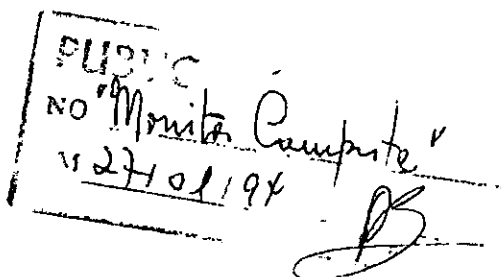 PUBLIC
NO "Monitor Campista"
27/01/94